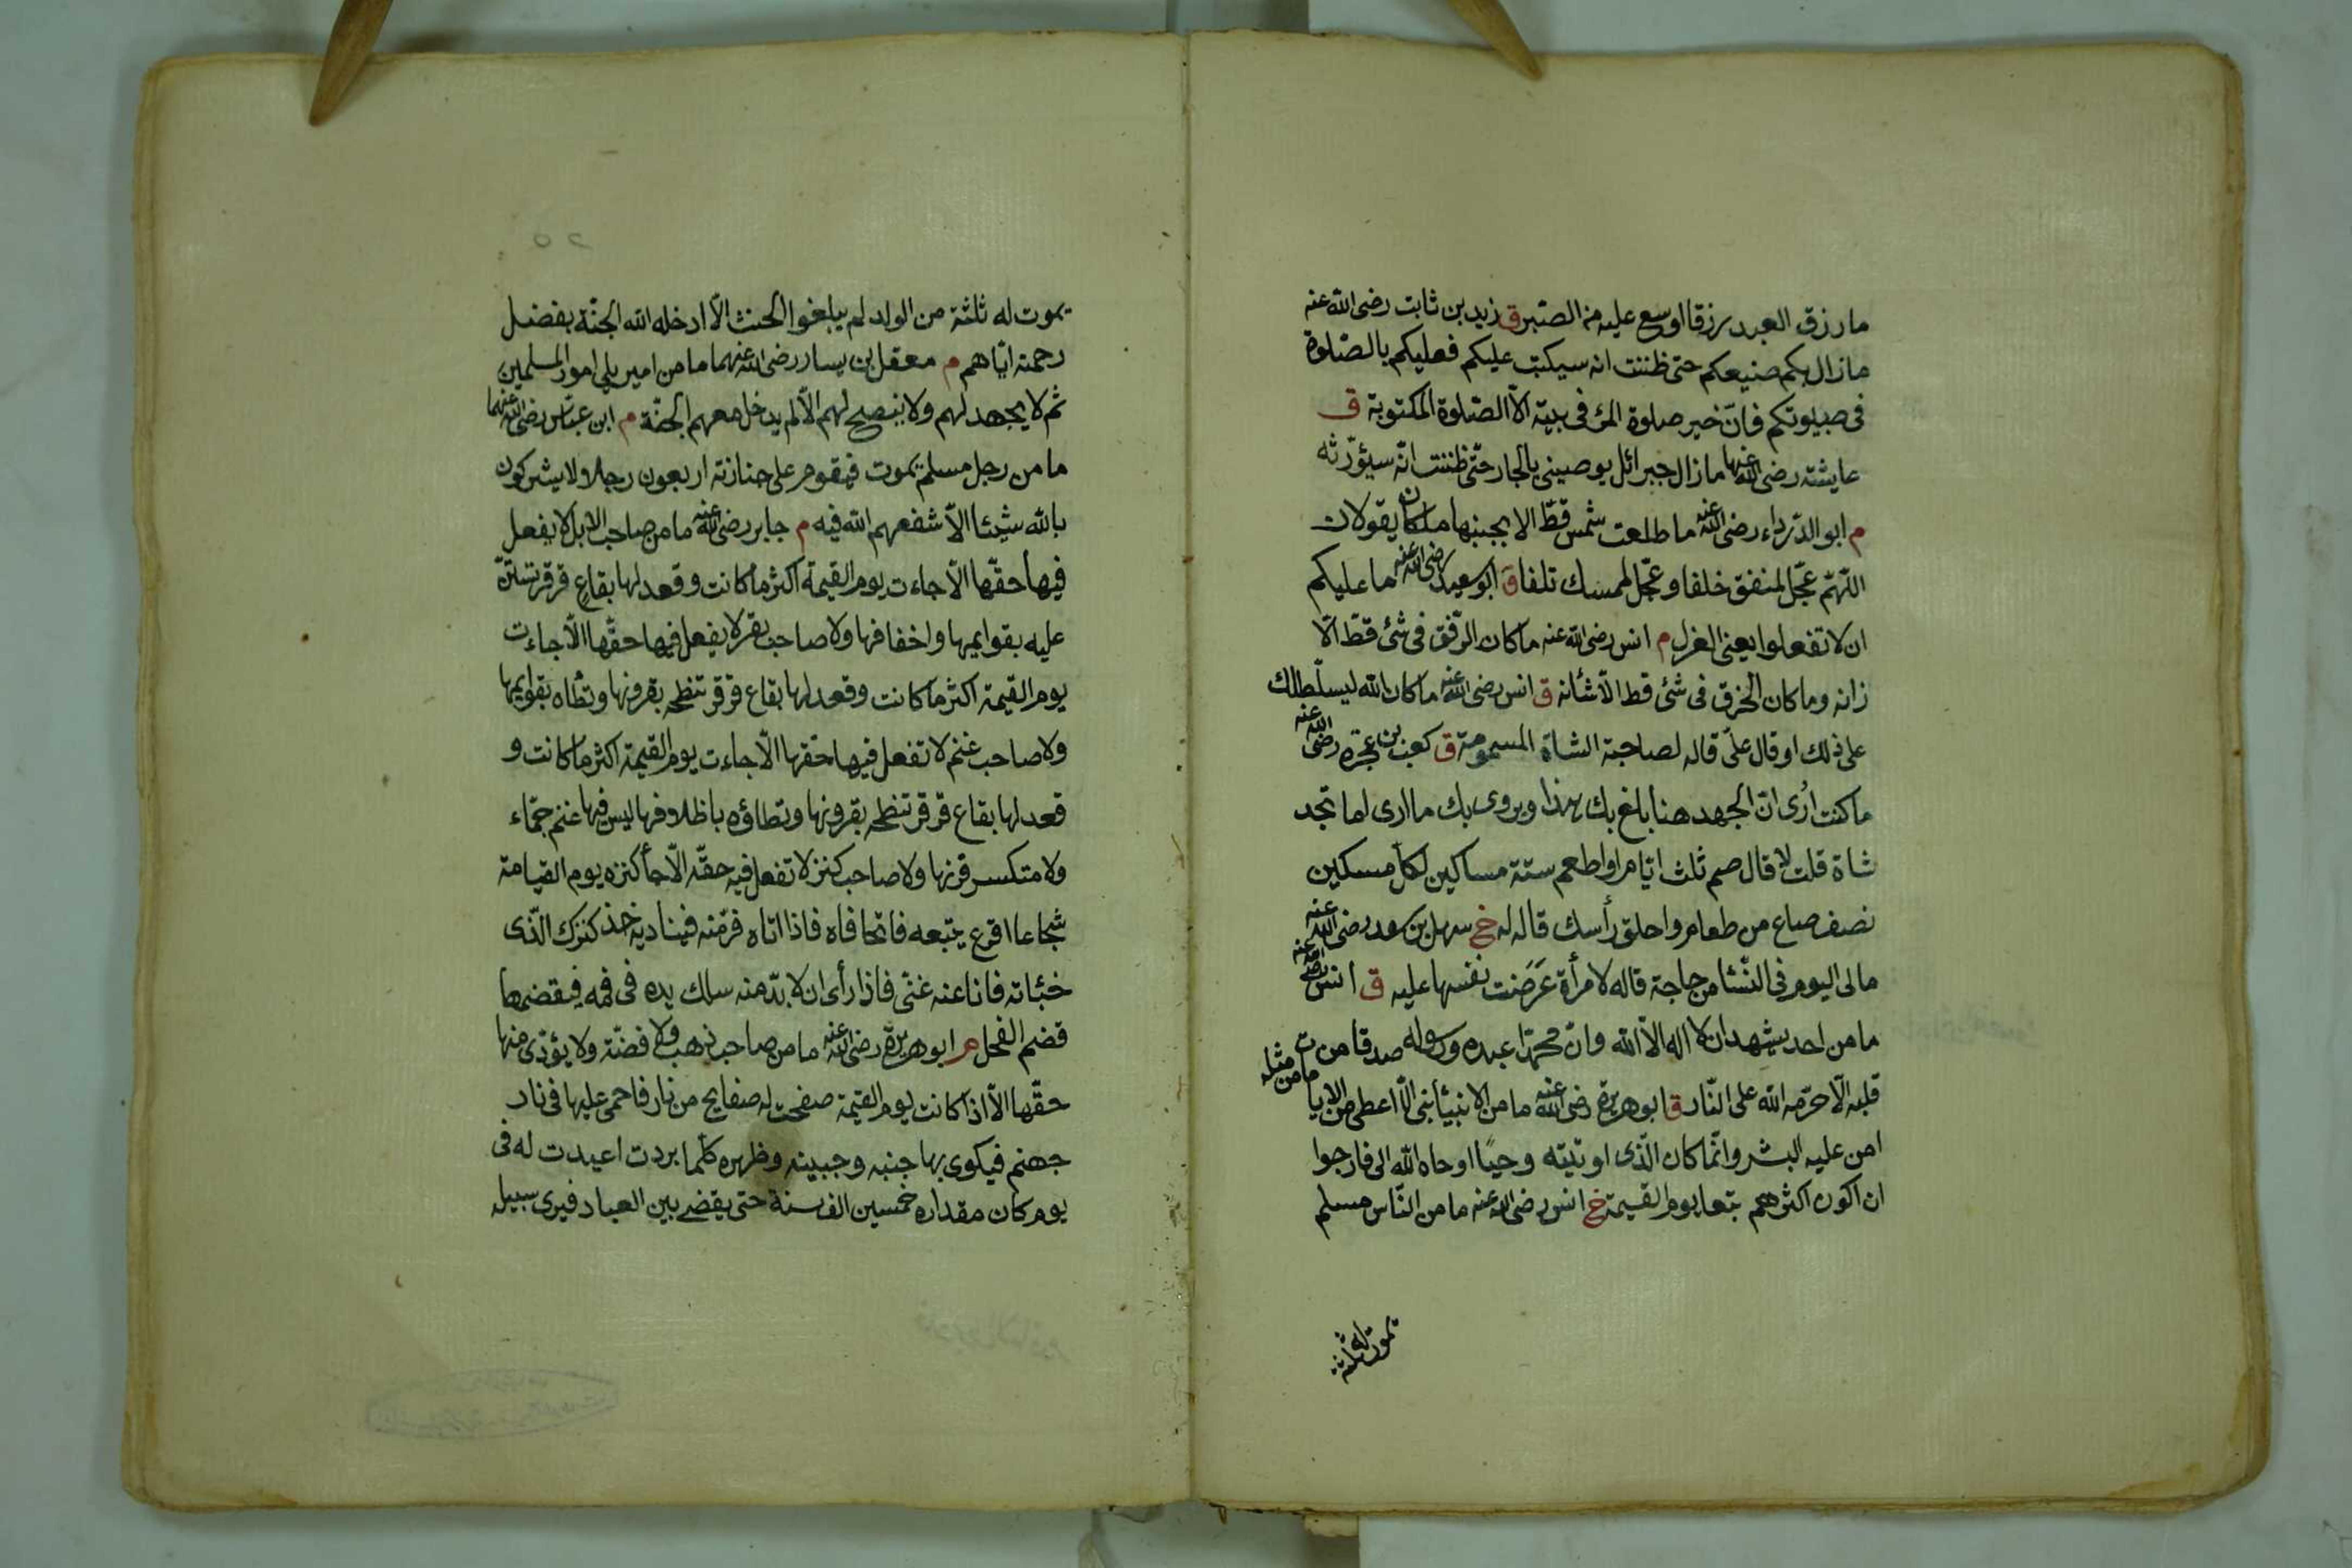 ما رزق العبد رزقا اوسع عليه من الصّبر ق زيد بن ثابت رضى الله عنه
ما زال بكم صنيعكم حتى ظننت انه سيكتب عليكم فعليكم بالصّلوة
فى صبيوتكم فانّ خير صلوة المرٔ فى بيته الاّ الصّلوة المكتوبة ق
عايشته رضى الله عنها ما زال جبرائل يوصينى بالجار حتّى ظننت انّه سيؤرّثه
م ابو الدّرداء رضى الله عنه ما طلعت شمس قطّ الا بجنبها ملكان يقولان
اللّهمّ عجّل لمنفق خلفا وعجّل لممسك تلفا ق ابو سعيد رضى الله عنه ما عليكم
ان لا تفعلوا يعنى العزل م انس رضى الله عنه ما كان الرّفق فى شئ قطّ الّا
زانه وما كان الخرق فى شئ قط الّا شانه ق انس رضى الله عنه ما كان الله ليسلّطك
على ذلك او قال علىّ قاله لصاحبة الشاة المسمومة ق كعب بن عجرة رضى الله عنه
ما كنت اُرى انّ الجهد هنا بلغ بك هذا ويروى بك ما ارى اما تجد
شاة قلت لا قال صم ثلث ايّام او اطعم ستة مساكين لكل مسكين
نصف صاع من طعام واحلق رأسك قاله له خ سهل بن سعد رضى الله عنه
مالى اليوم فى النّسٔا من حاجة قاله لامرأة عَرَضَت نفسها عليه ق انس رضى الله عنه
ما من احد يشهد ان لا اله الّا الله وانّ محمّدا عبده ورسوله صدقا من
قلبه الّا حرّمه الله على النّار ق ابو هريرة رضى الله عنه ما من الانبئا نبى الّا اعطى من الايات ما من مثله
امن عليه البشر وانّما كان الّذى اوتيته وحيًا اوحاه الله الى فارجوا
ان اكون اكثرهم تبعا يوم القيمة خ انس رضى الله عنه ما من النّاس مسلم
يموت له ثلثة
يموت له ثلثة من الولد لم يبلغوا الحنث الّا ادخله الله الجنّة بفضل
رحمته ايّاهم م معقل بن يسار رضى الله عنهما ما من امير يلى امور المسلمين
ثم لا يجهد لهم ولا ينصح لهم الّا لم يدخل معهم الجنّة م ابن عبّاس رضى الله عنهما
ما من رجل مسلم يموت فيقوم على جنازته اربعون رجلا ولا يشركون
بالله شيئا الّا شفعهم الله فيه م جابر رضى الله عنه ما من صاحب الابل لا يفعل
فيها حقّها الّا جاءت يوم القيمة اكثر ما كانت وقعد لها بقاع قرقر تستنّ
عليه بقوايمها واخفافها ولا صاحب بقر لا يفعل فيها حقّها الّا جاءت
يوم القيمة اكثر ما كانت وقعد لها بقاع قرقر تنطحه بقرونها وتطأه بقوايمها
ولا صاحب غنم لا تفعل فيها حقها الّا جاءت يوم القيمة اكثر ما كانت و
قعد لها بقاع قرقر تنطحه بقرونها وتطاؤه باظلافها ليس فيها غنم جمّاء
ولا متكسر قرنها ولا صاحب كنز لا تفعل فيه حقّه الّا جأ كنزه يوم القيامة
شجاعا اقرع يتبعه فاتحا فاه فاذا اتاه فرّمنه فيناديه خذ كنزك الّذى
خبّاته فانا عنه غنّى فاذا رأى ان لا بدّ منه سلك يده فى فمه فيقضمها
قضم الفحل م ابو هريرة رضى الله عنه ما من صاحب ذهب ولا فضّة ولا يؤدّى منها
حقّها الّا اذا كانت يوم القيمة صفحت له صفايح من نار فاحمى عليها فى نار
جهنم فيكوى بها جنبه وجبينه وظهره كلما بردت اعيدت له فى
يوم كان مقداره خمسين الف سنة حتى يقضى بين العباد فيرى سبيله